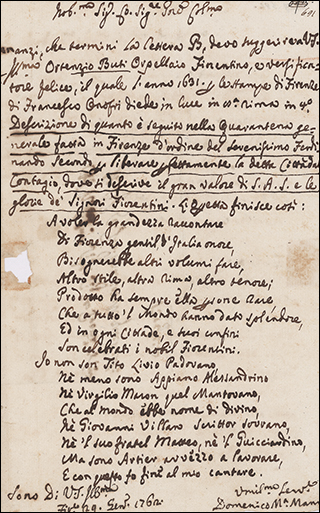 Nob.mo Sig.r Co. Sig.re Pn̄e Colmo
691
nanzi, che termini la Lettera B, devo suggerire a V.S.
Ill.ma Ostenzio Buti Cappellaio Fiorentino, e versifica-
tore felice, il quale l'anno 1631. p le stampe di Firenze
di Francesco Onofri diede in luce in 8.a Rima in 4.o
Descrizione di quanto è seguito nella Quarantena ge-
nerale fatta in Firenze d'ordine del Serenissimo Ferdi
nando Secondo p liberare pfettamente la detta Città dal
Contagio, dove si descrive il gran valore di S.A.S. e le
glorie de' Signori Fiorentini. E questa finisce così:
A voler la grandezza raccontare
Di Fiorenza gentil d'Italia onore,
Bisognerebbe altri volumi fare,
Altro stile, altra rima, altro tenore;
Prodotto ha sempre essa psone rare
Che a tutto 'l Mondo hanno dato splendore,
Ed in ogni Cittade, e tuoi confini
Son celebrati i nobil Fiorentini.
Io non son Tito Livio Padovano,
Nè meno sono Appiano Alessandrino
Nè Virgilio Maron quel Mantovano,
Che al mondo ebbe nome di divino,
Nè Giovanni Villani scrittor sovrano,
Nè 'l suo fratel Matteo, nè 'l Guicciardino,
Ma sono Artier avvezzo a lavorare,
E con questo fo fine al mio cantare.
Sono Di V.S. Ill.ma
Fir.e 29. Genn.o 1762.
Umil.mo Serv.e
Domenico M.a Mann